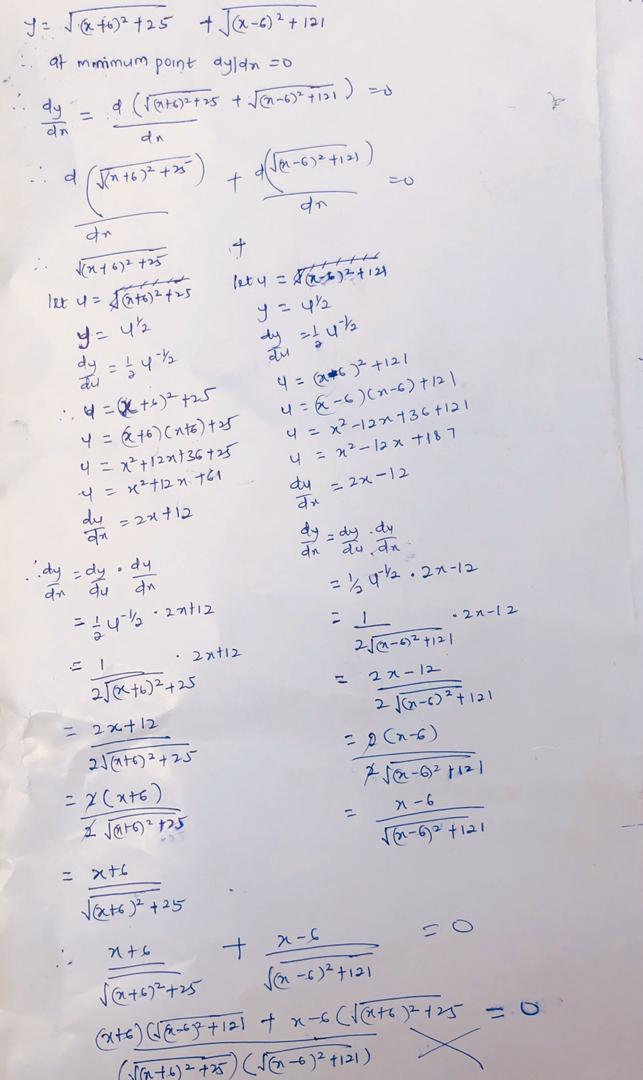 y = √(x+6)² + 25 + √(x-6)² + 121
∴ at minimum point dy/dx = 0
∴ dy/dx = d(√(x+6)²+25 + √(x-6)²+121)/dx = 0
∴ d(√(x+6)²+25)/dx + d(√(x-6)²+121)/dx = 0
∴ √(x+6)²+25 +
let u = √(x+6)²+25
y = u^½
dy/du = ½ u^-½
∴ u = (x+6)² + 25
u = (x+6)(x+6)+25
u = x²+12x+36+25
u = x²+12x+61
du/dx = 2x+12
∴ dy/dx = dy/du · du/dx
= ½ u^-½ · 2x+12
= 1/2√(x+6)²+25 · 2x+12
= 2x+12/2√(x+6)²+25
= 2(x+6)/2√(x+6)²+25
= x+6/√(x+6)²+25
let u = √(x-6)²+121
y = u^½
dy/du = ½ u^-½
u = (x-6)² + 121
u = (x-6)(x-6)+121
u = x²-12x+36+121
u = x²-12x+187
du/dx = 2x-12
dy/dx = dy/du · du/dx
= ½ u^-½ · 2x-12
= 1/2√(x-6)²+121 · 2x-12
= 2x-12/2√(x-6)²+121
= 2(x-6)/2√(x-6)²+121
= x-6/√(x-6)²+121
∴ x+6/√(x+6)²+25 + x-6/√(x-6)²+121 = 0
(x+6)(√(x-6)²+121 + x-6(√(x+6)²+25/(√(x+6)²+25)(√(x-6)²+121) = 0